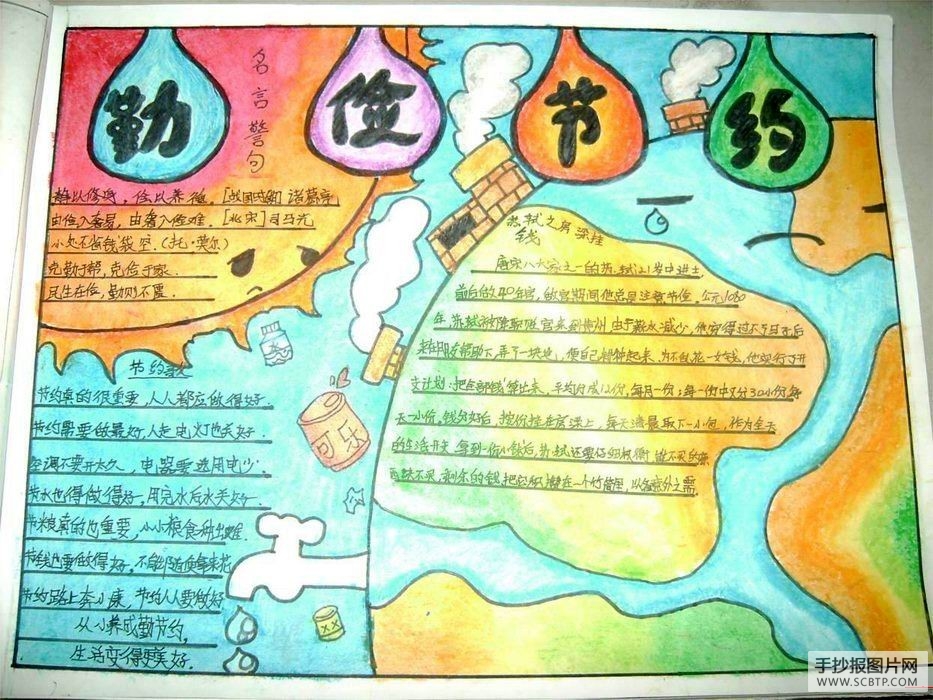 勤俭节约
名言警句
静以修身，俭以养德。[战国时期]诸葛亮
由俭入奢易，由奢入俭难。[北宋]司马光
小处不省钱袋空.(托·莫尔)
克勤于邦，克俭于家.
民生在俭，勤则不匮.
节约歌
节约真的很重要，人人都应做得好.
节约需要做最好，人走电灯也关好.
空调不要开太久，电器要选用电少.
节水也得做得好，用完水后水关好.
节粮真的也重要，小小粮食种出难.
节钱也要做得好，不能随便拿来花
节约踏上奔小康，节约人人要做好
从小养成勤节约，
生活变得更美好.
可乐
苏轼之房梁挂
钱
唐宋八大家之一的苏轼21岁中进士
前后做40年官，做官期间他总是注意节俭。公元1080
年，苏轼被降职贬官来到黄州，由于薪水减少，他穷得过不了日子后
来在朋友帮助下，弄了一块地，便自己耕种起来，为不乱花一文钱，他还实行开
支计划：把全部钱算出来，平均分成12份，每月一份；每一份中又分30小份，每
天一小份，钱分好后，按份挂在房梁上，每天清晨取下一小包，作为全天
的生活开支，拿到一份小钱后，苏轼还要仔细权衡，能不买的东
西坚决不买，剩余的钱，把它积攒在一个竹筒里，以备意外之需
手抄报图片网
WWW.SCBTP.COM